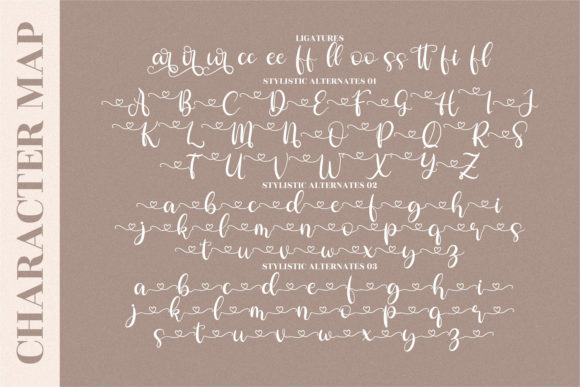 CHARACTER MAP
LIGATURES
ar ir ur cc ee ff ll oo ss tt fi fl
STYLISTIC ALTERNATES 01
A B C D E F G H I J
K L M N O P Q R S
T U V W X Y Z
STYLISTIC ALTERNATES 02
a b c d e f g h i
j k l m n o p q r s
t u v w x y z
STYLISTIC ALTERNATES 03
a b c d e f g h i
j k l m n o p q r
s t u v w x y z